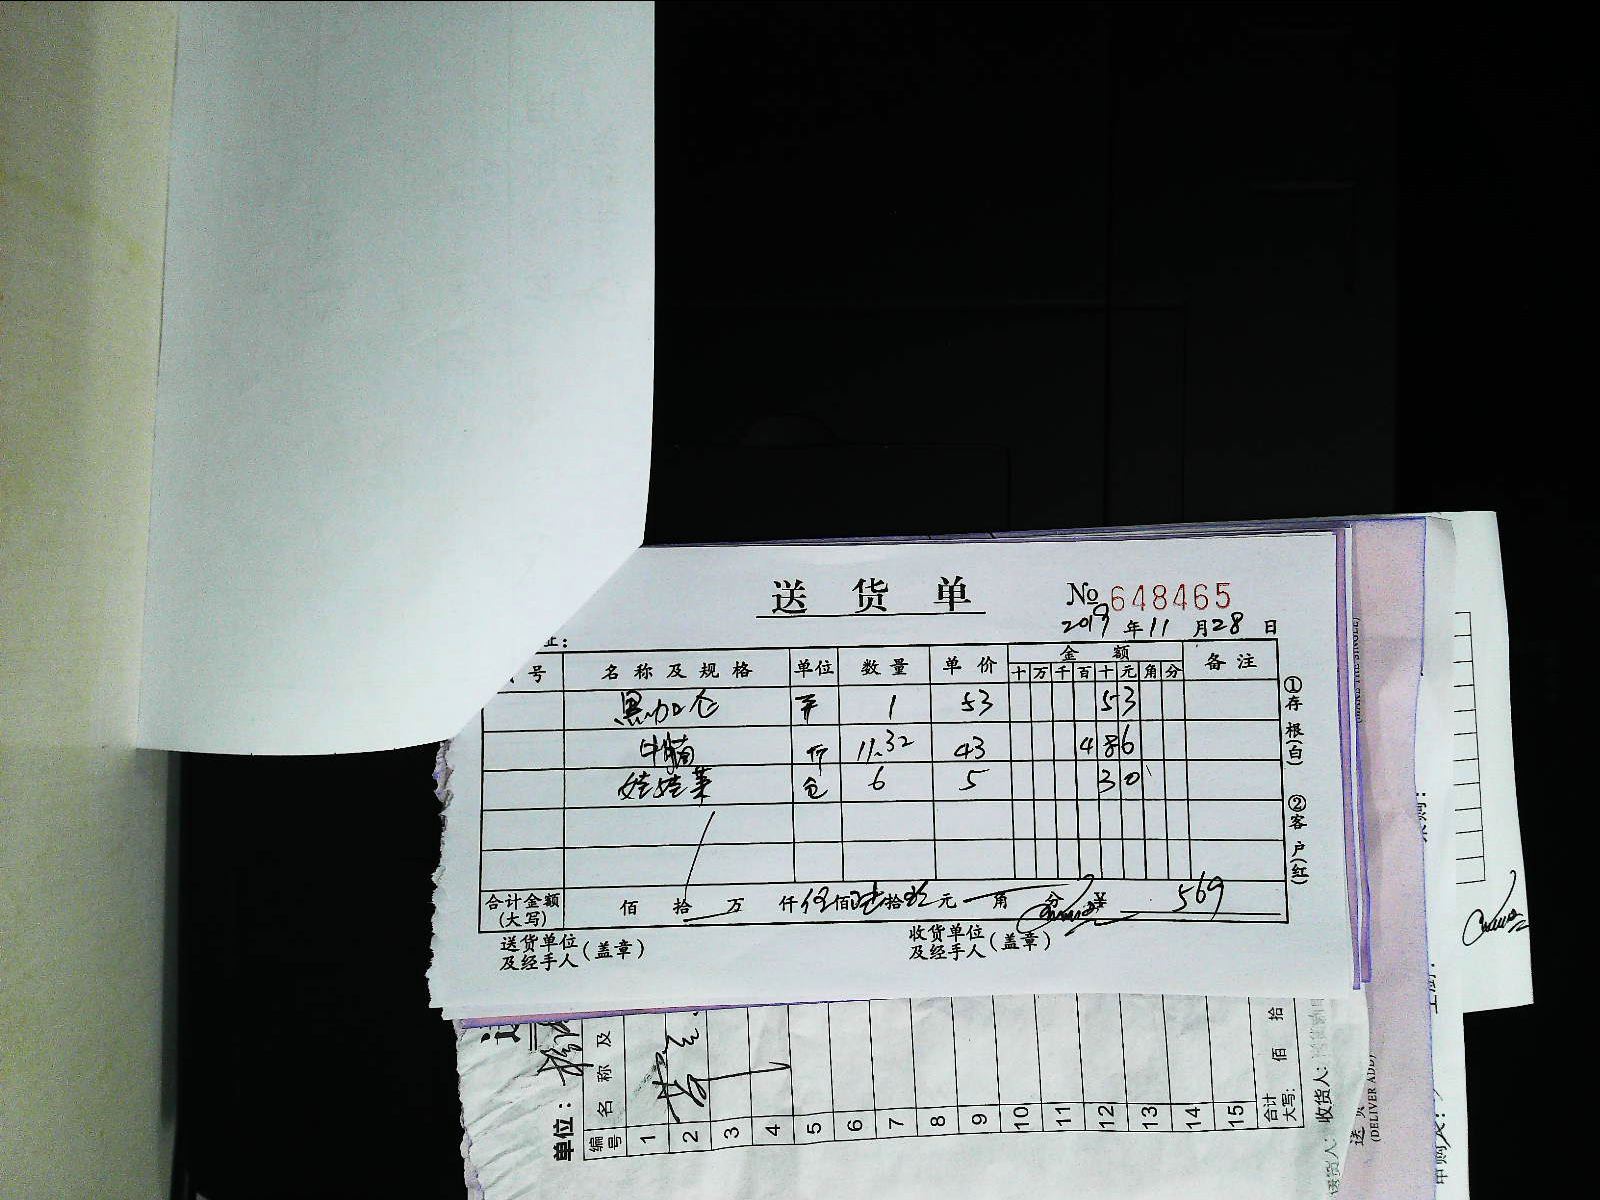 送货单
№ 648465
2019年11月28日
址：
号 名称及规格 单位 数量 单价 金额 备注
十万千百十元角分
黑加仑 1 53 53
牛腩 斤 11.32 43 486
娃娃菜 包 6 5 30
合计金额(大写) 佰拾万仟伍佰陆拾玖元角分¥ 569
送货单位及经手人(盖章) 收货单位及经手人(盖章)
①存根(白)
②客户(红)
单位：
编号 名称及
1
2
3
4
5
6
7
8
9
10
11
12
13
14
15
合计大写： 佰 拾
收货人：
(DELIVER ADD)